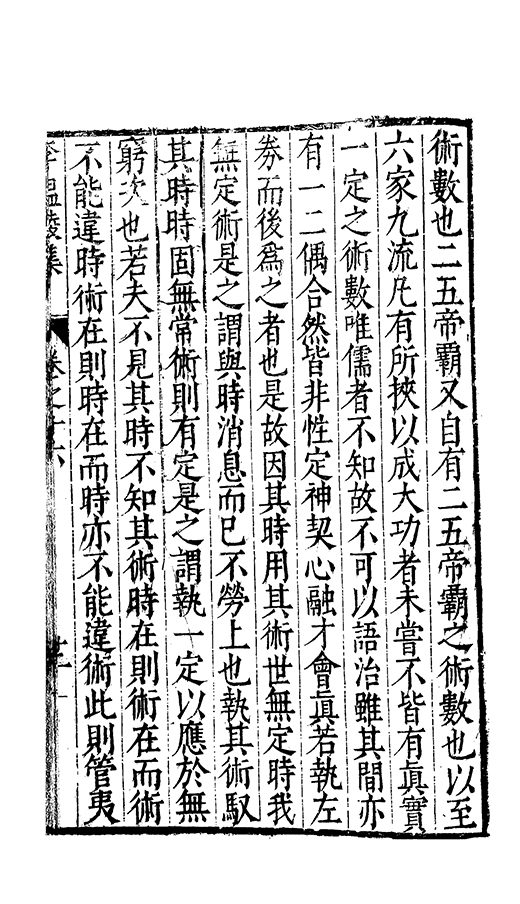 術數也二五帝霸又自有二五帝霸之術數也以至
六家九流凡有所挾以成大功者未嘗不皆有眞實
一定之術數唯儒者不知故不可以語治雖其間亦
有一二偶合然皆非性定神契心融才會眞若執左
券而後爲之者也是故因其時用其術世無定時我
無定術是之謂與時消息而已不勞上也執其術馭
其時時固無常術則有定是之謂執一定以應於無
窮次也若夫不見其時不知其術時在則術在而術
不能違時術在則時在而時亦不能違術此則管夷
李溫陵集 卷之十六